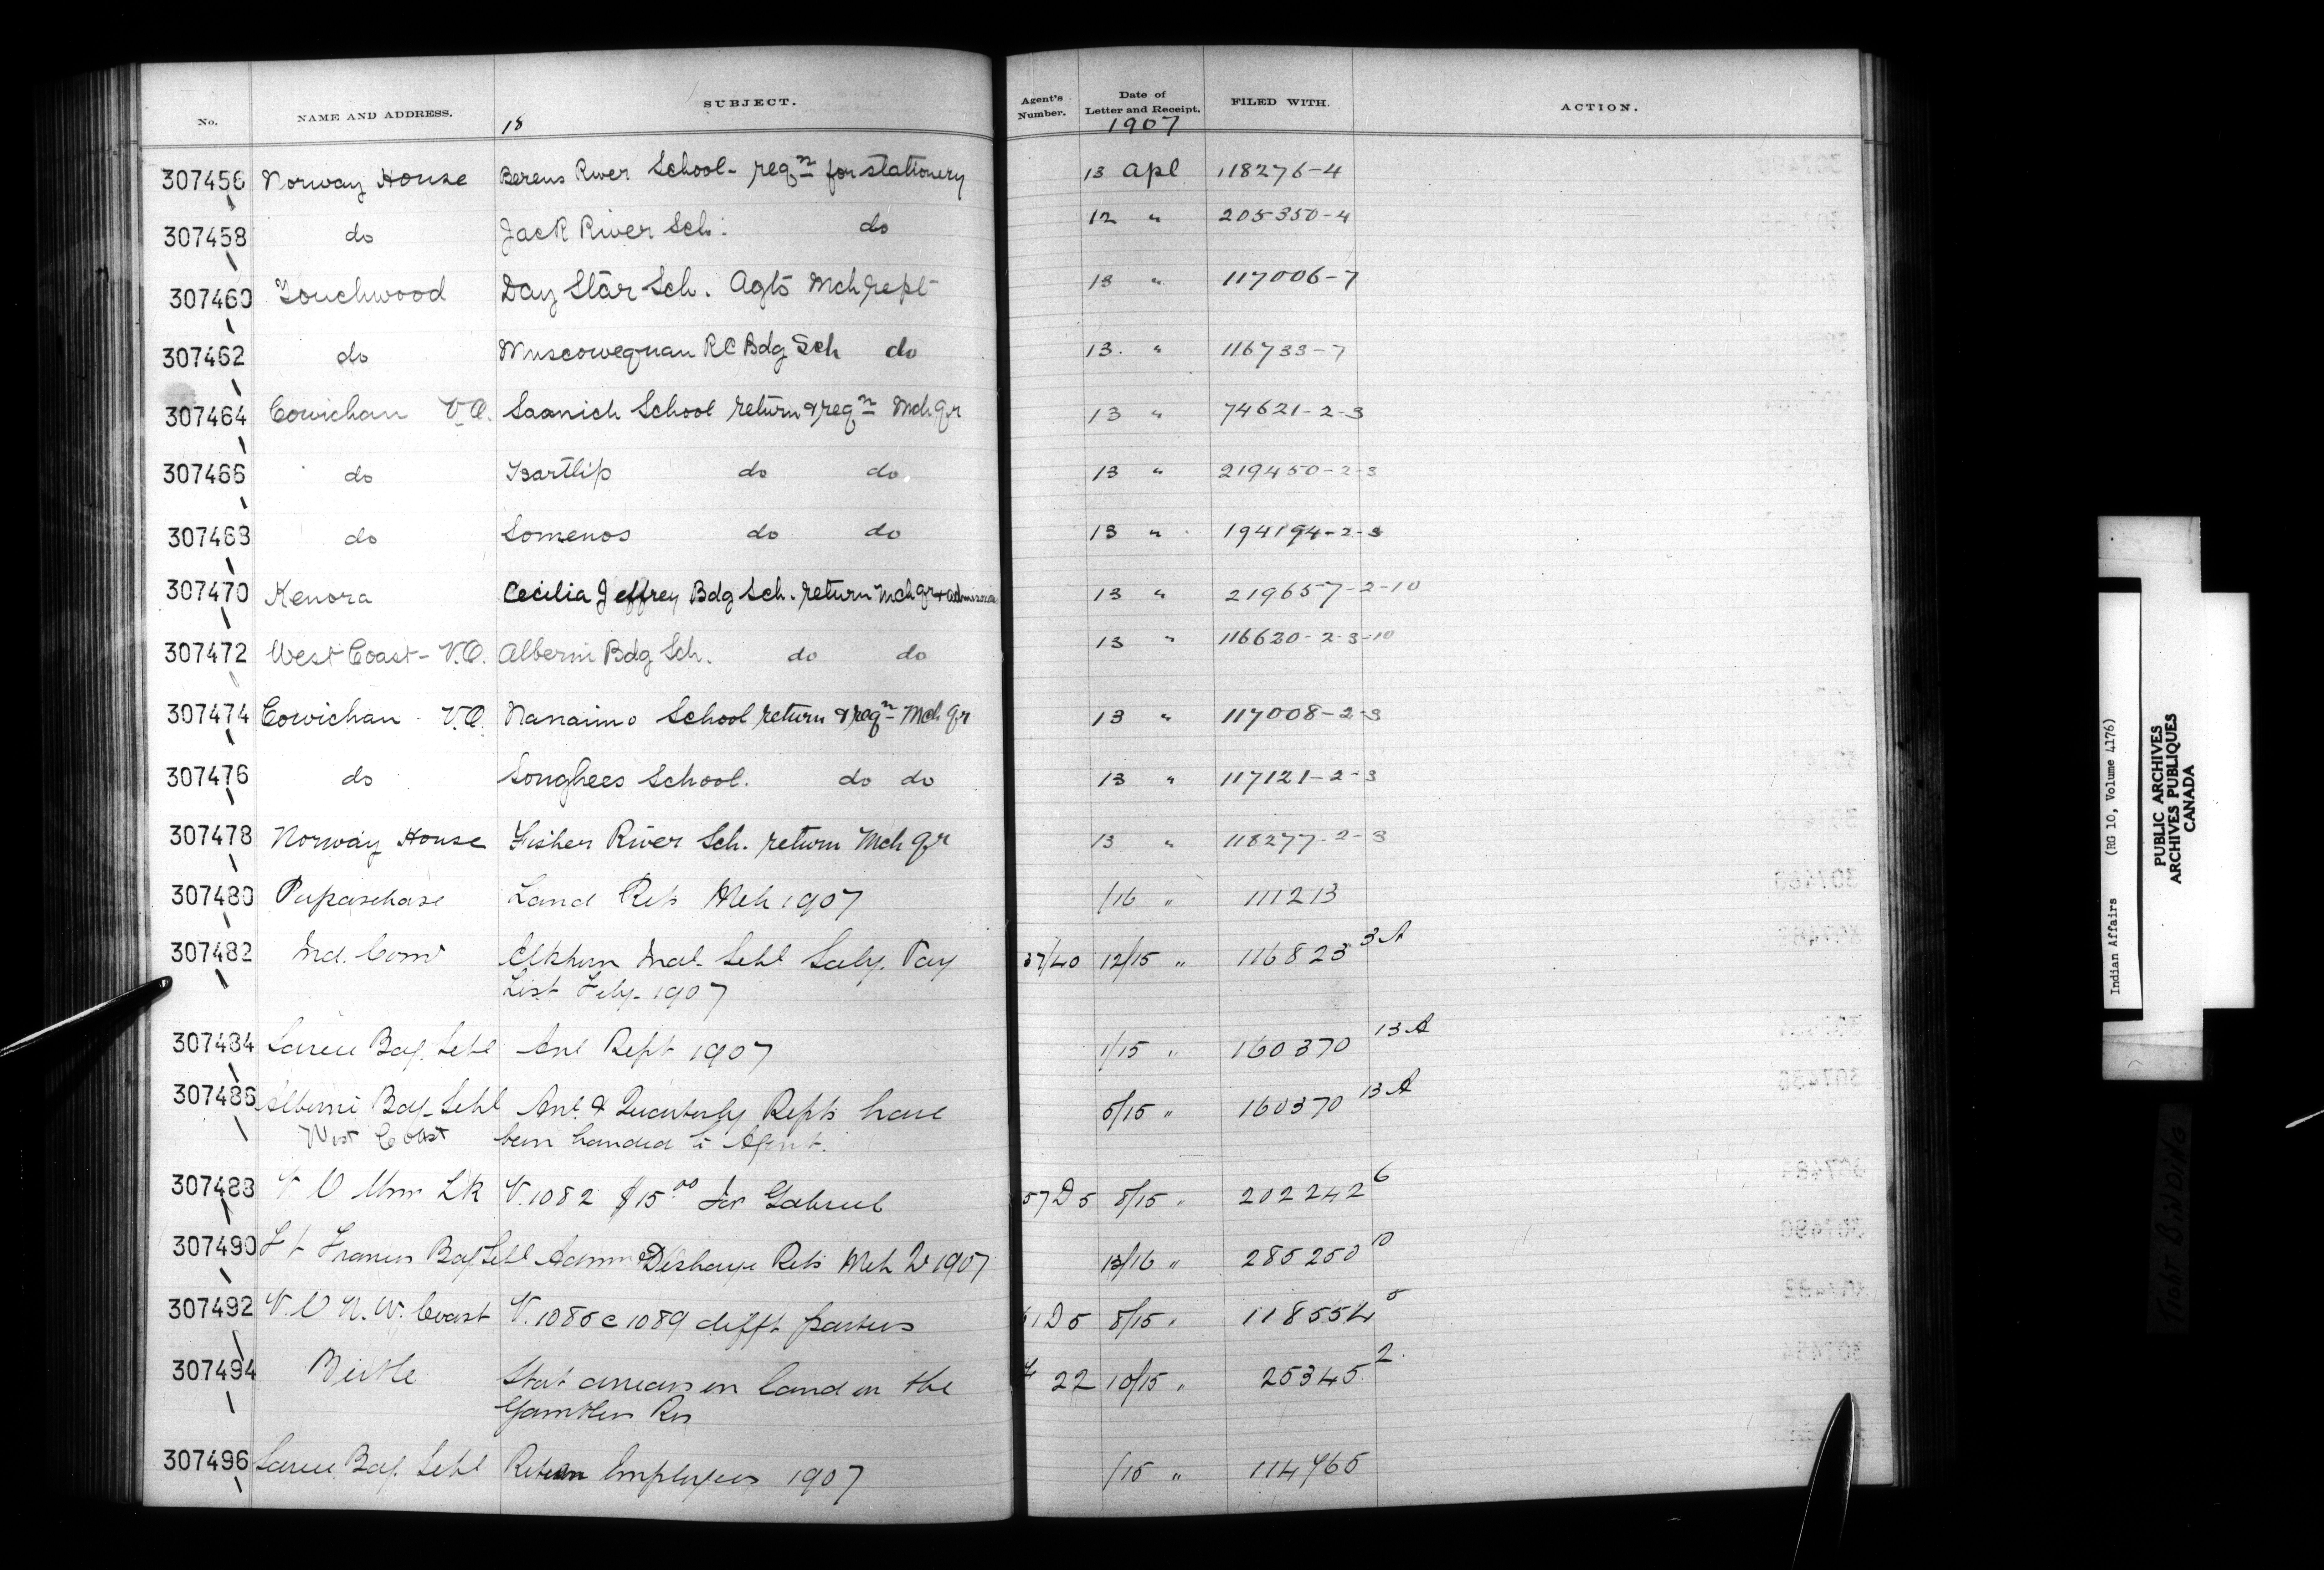 No. NAME AND ADDRESS. SUBJECT. Agent's Number. Date of Letter and Receipt. FILED WITH. ACTION.
18 1907
307456 Norway House Berens River School - reqn for stationery 13 Apl 118276-4
307458 do Jack River Sch. do 12 " 205350-4
307460 Touchwood Day Star Sch. Agts Mch rept 13 " 117006-7
307462 do Muscowequan RC Bdg Sch do 13. " 116733-7
307464 Cowichan V.O. Saanich School return & reqn Mch qr 13 " 74621-2-3
307466 do Tsartlip do do 13 " 219450-2-3
307468 do Somenos do do 13 " 194194-2-3
307470 Kenora Cecilia Jeffrey Bdg Sch. return Mch qr + admission 13 " 219657-2-10
307472 West Coast - V.O. Alberni Bdg Sch. do do 13 " 116620-2-3-10
307474 Cowichan - V.O. Nanaimo School return & reqn Mch qr 13 " 117008-2-3
307476 do Songhees School. do do 13 " 117121-2-3
307478 Norway House Fisher River Sch. return Mch qr 13 " 118277-2-3
307480 Papaschase Land Rets Mch 1907 /16 " 111213
307482 Ind. Comr Elkhorn Indl. Schl Saly. Pay 37/40 12/15 " 116823 3A
List Feby. 1907
307484 Sarcee Bdg. Schl Anl Rept 1907 1/15 " 160370 13A
307486 Alberni Bdg. Schl Anl & Quarterly Repts have 5/15 " 160370 13A
West Coast been handed to Agent.
307488 V O Wms Lk V. 1082 $15.00 for Gabriel 57 D 5 8/15 " 202242 6
307490 Ft Frances Bdg Schl Admn & Discharge Rets Mch Qr 1907 13/16 " 285250 10
307492 V. O N. W. Coast V. 1085 @ 1089 difft parties 1 D 5 8/15 " 118554 5
307494 Birtle Stat arrears on land on the 22 10/15 " 25345 2.
Gamblers Res
307496 Sarcee Bdg. Schl Return Employees 1907 /15 " 114765
Indian Affairs (RG 10, Volume 4176)
PUBLIC ARCHIVES
ARCHIVES PUBLIQUES
CANADA
TIGHT BINDING